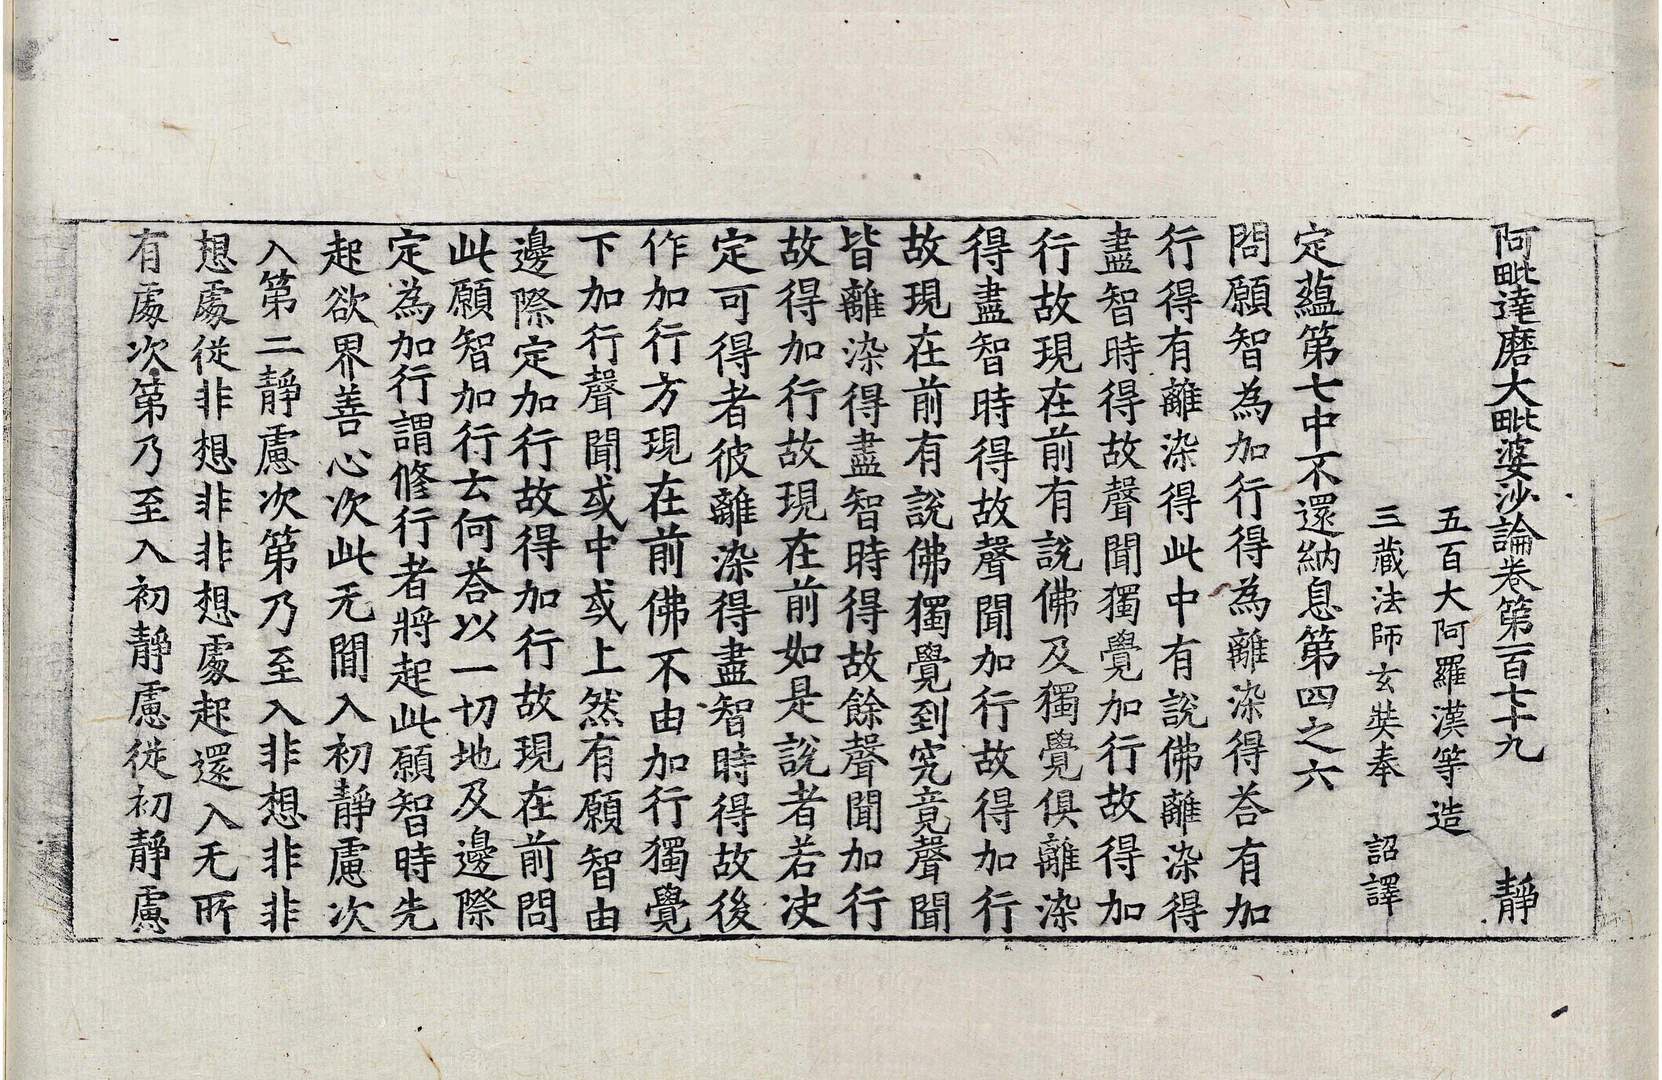 阿毗達磨大毗婆沙論卷第一百七十九 靜
五百大阿羅漢等造
三藏法師玄奘奉 詔譯
定蘊第七中不還納息第四之六
問願智為加行得為離染得荅有加
行得有離染得此中有說佛離染得
盡智時得故聲聞獨覺加行故得加
行故現在前有說佛及獨覺俱離染
得盡智時得故聲聞加行故得加行
故現在前有說佛獨覺到究竟聲聞
皆離染得盡智時得故餘聲聞加行
故得加行故現在前如是說者若決
定可得者彼離染得盡智時得故後
作加行方現在前佛不由加行獨覺
下加行聲聞或中或上然有願智由
邊際定加行故得加行故現在前問
此願智加行云何荅以一切地及邊際
定為加行謂修行者將起此願智時先
起欲界善心次此无間入初靜慮次
入第二靜慮次第乃至入非想非非
想處從非想非非想處起還入无所
有處次第乃至入初靜慮從初靜慮